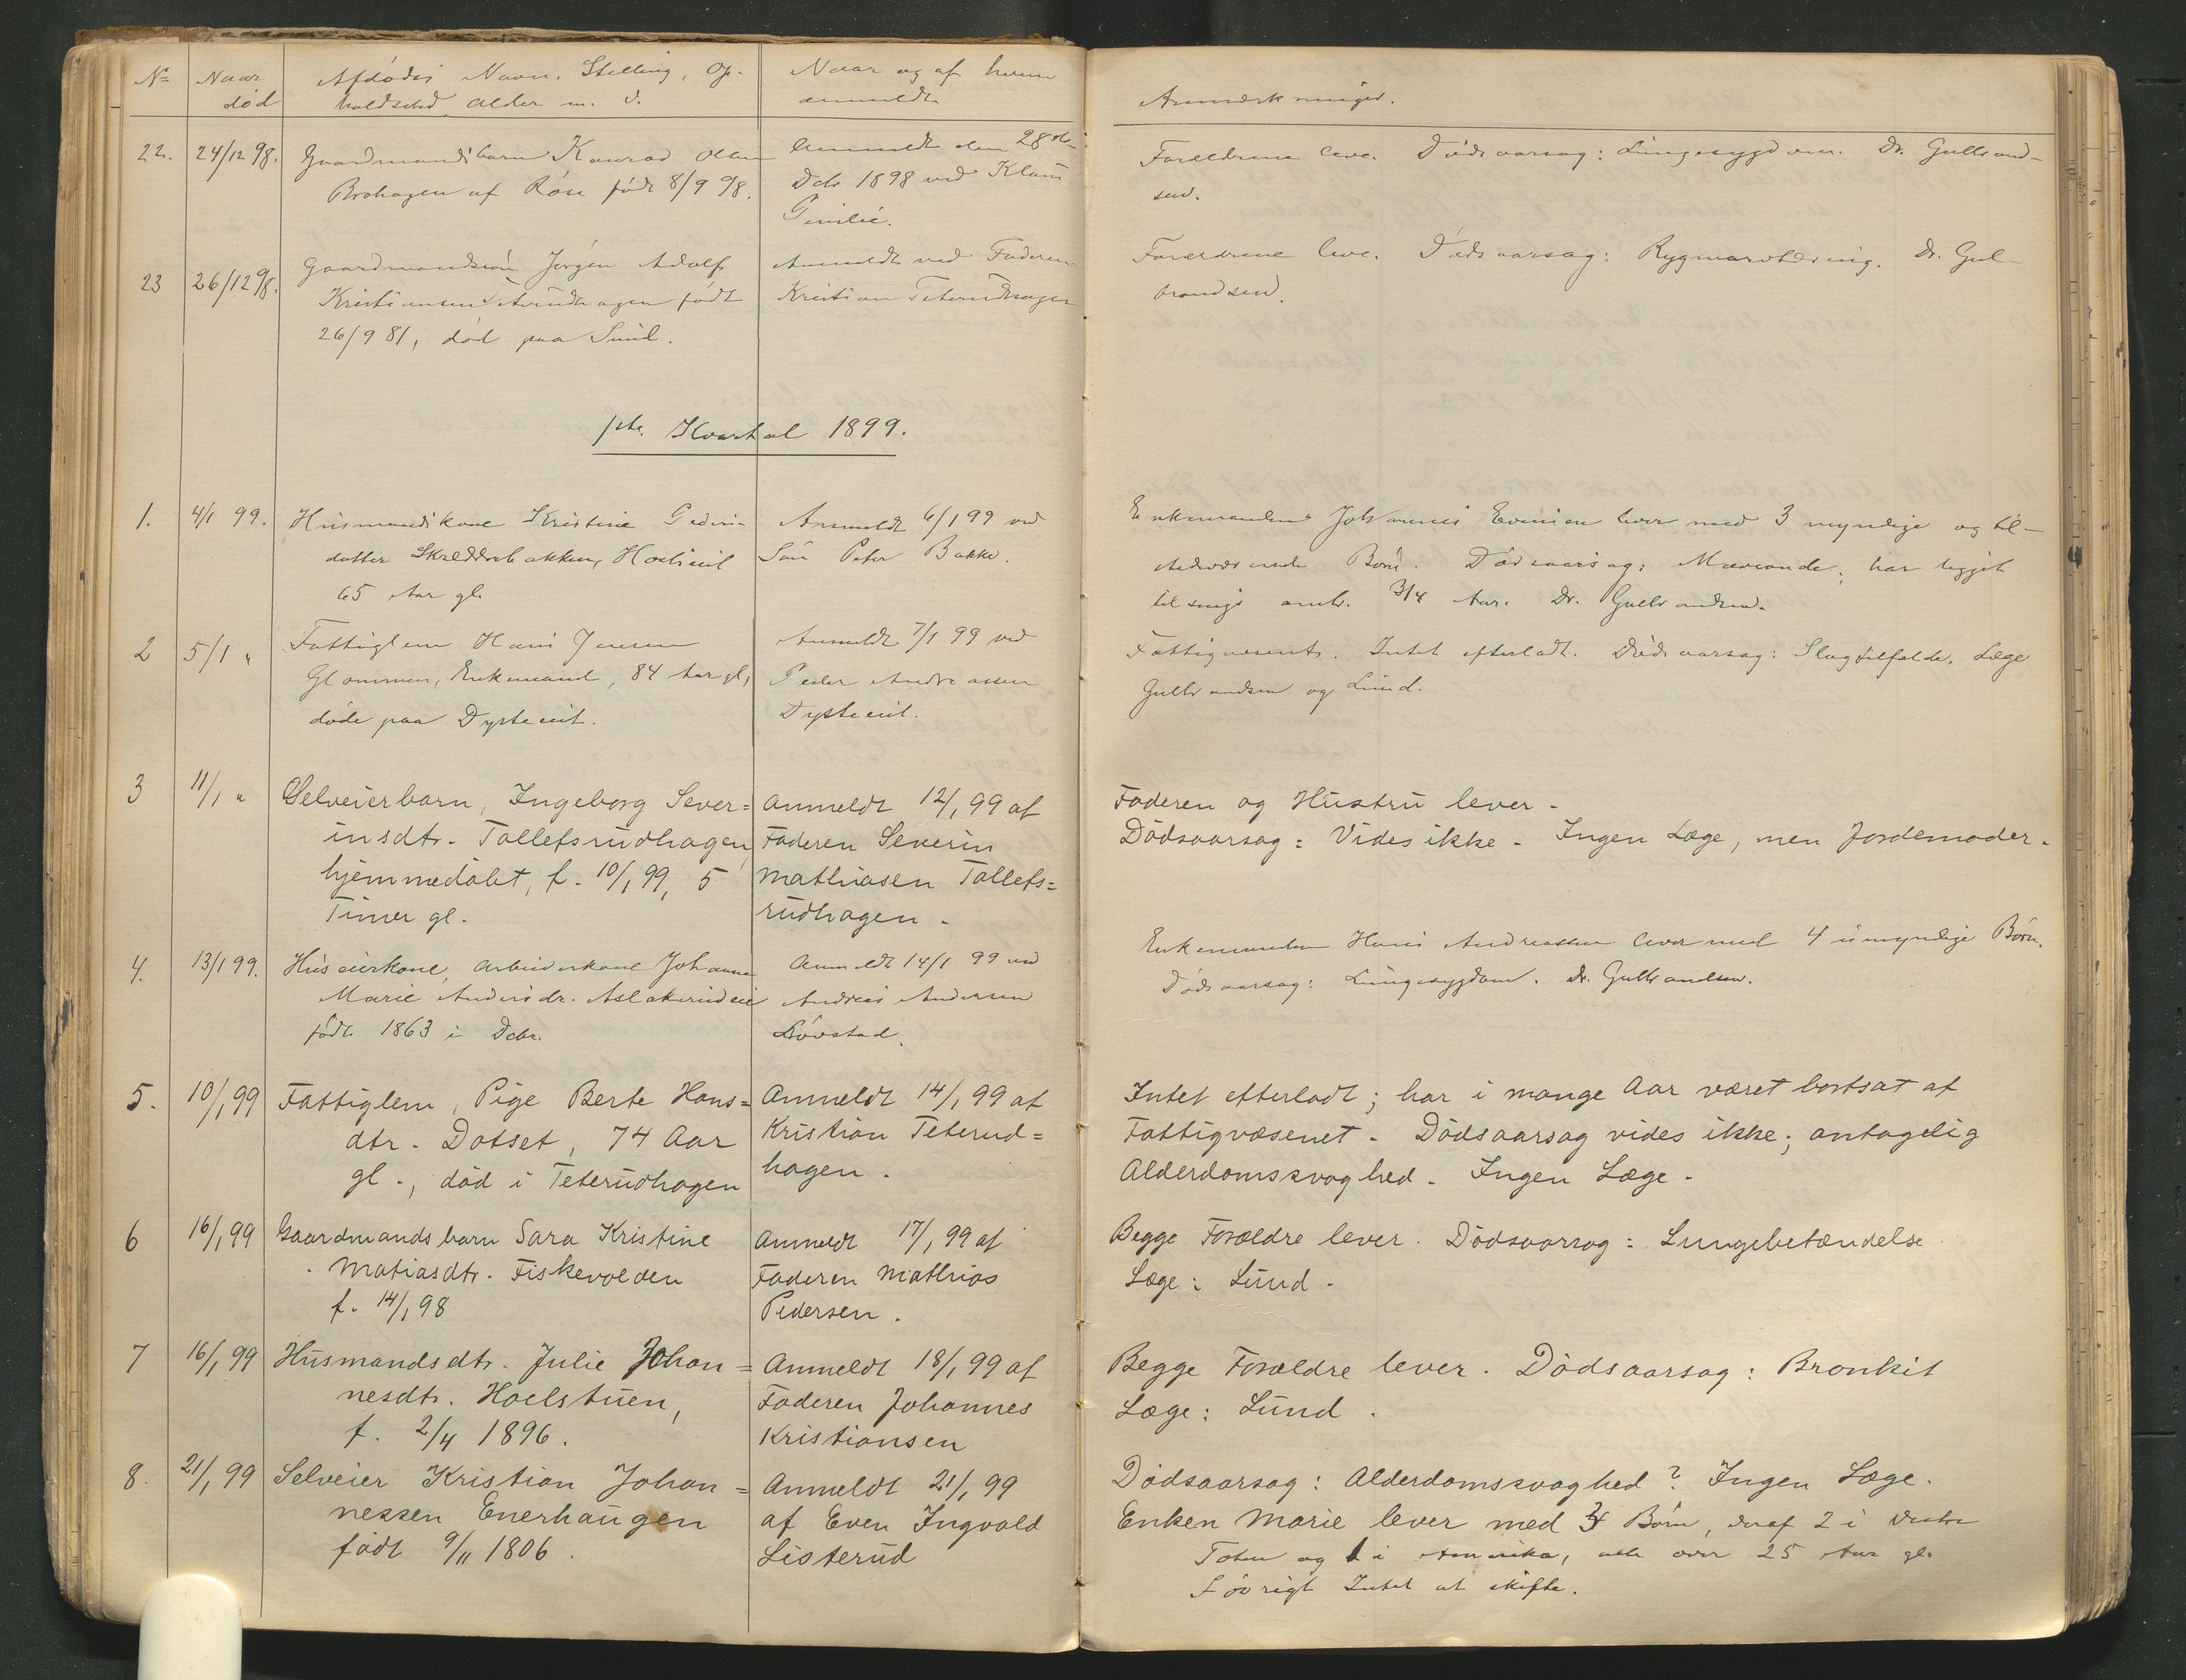 No Naar Afdødes Navn, Stilling, Op- Naar og af hvem
død holdssted, Alder m. v. anmeldt
Anmærkninger.
22. 24/12 98. Gaardmandsbarn Konrad Olsen Anmeldt den 28de
Brohagen af Røse født 8/9 98. Dcbr 1898 ved Klaus
Forældrene leve. Dødsaarsag: Lungesygdom. Dr. Gulbrand-
sen.
23 26/12 98. Gaardmandssøn Jørgen Adolf Anmeldt ved Faderen
Kristiansen Teterudhagen født Kristian Teterudhagen
26/9 81, død paa Sund.
Forældrene leve. Dødsaarsag: Rygmarvstæring. Dr. Gul-
brandsen.
1ste Kvartal 1899.
1. 4/1 99. Husmandskone Kristine Peders- Anmeldt 6/1 99 ved
datter Skrædderbakken, Søn Peter Bakke.
65 Aar gl.
Enkemanden Johannes Evensen lever med 3 myndige og til-
stedeværende Børn. Dødsaarsag: Mavronde, har ligget
til sengs omtr. 3/4 Aar. Dr. Gulbrandsen.
2 5/1 " Fattiglem Hans Jensen Anmeldt 7/1 99 ved
Glommen, Enkemand, 84 Aar gl, Peder Andreassen
døde paa Dysteeiet. Dysteeiet.
Fattigvæsenets. Intet efterladt. Dødsaarsag: Slagtilfælde. Læge
Gulbrandsen og Lund.
3 11/1 " Selveierbarn, Ingeborg Sever= Anmeldt 12/1 99 af
insdtr. Tollefsrudhagen, Faderen Severin
hjemmedøbt, f. 10/1 99, 5 Mathiasen Tollefs=
Timer gl. rudhagen.
Faderen og Hustru lever.
Dødsaarsag: Vides ikke. Ingen Læge, men Jordemoder.
4. 13/1 99. Huseierkone, Arbeiderkone Johanne Anmeldt 14/1 99 ved
Marie Andersdr. Aslakrudeie Andreas Andersen
født 1863 i Dcbr. Løvstad.
Enkemanden Hans Andreassen lever med 4 umyndige Børn.
Dødsaarsag: Lungesygdom. Dr. Gulbrandsen.
5. 10/1 99 Fattiglem, Pige Berte Hans= Anmeldt 14/1 99 af
dtr. Dotset, 74 Aar Kristian Teterud=
gl., død i Teterudhagen hagen.
Intet efterladt; har i mange Aar været bortsat af
Fattigvæsenet. Dødsaarsag vides ikke; antagelig
Alderdomssvaghed. Ingen Læge.
6 16/1 99 Gaardmandsbarn Sara Kristine Anmeldt 17/1 99 af
Matiasdtr. Fiskevolden Faderen Mathias
f. 14/1 98 Pedersen.
Begge Forældre lever. Dødsaarsag: Lungebetændelse
Læge: Lund.
7 16/1 99 Husmandsdtr. Julie Johan= Anmeldt 18/1 99 af
nesdtr. Hoelstuen, Faderen Johannes
f. 2/4 1896. Kristiansen
Begge Forældre lever. Dødsaarsag: Bronkit
Læge: Lund.
8. 21/1 99 Selveier Kristian Johan= Anmeldt 21/1 99
nessen Enerhaugen af Even Ingvald
født 9/11 1806. Listerud
Dødsaarsag: Alderdomssvaghed? Ingen Læge.
Enken Marie lever med 3 Børn, deraf 2 i Vestre
Toten og 1 i Amerika, alle over 25 Aar gl.
Føvrigt Intet at skifte.